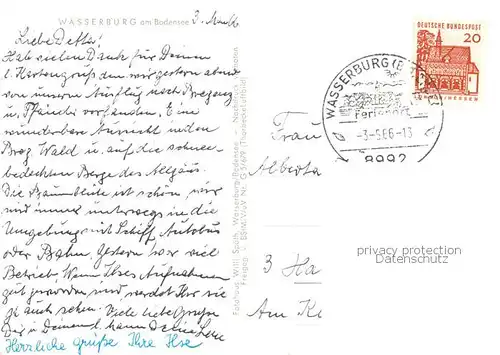 WASSERBURG am Bodensee
3. Mai 66
Liebe Detta!
Hab vielen Dank für Deinen
l. Kartengruß den wir gestern abend
von unserm Ausflug nach Bregenz
u. Pfänder vorfanden. Eine
wunderbare Aussicht in den
Breg. Wald u. auf die schnee-
bedeckten Berge des Allgäus.
Die Baumblüte ist schön, wir
sind immer unterwegs in die
Umgebung mit Schiff, Autobus
oder Bahn. Gestern war viel
Betrieb. Wenn Ilses Aufnahmen
gut geworden sind, werdet Ihr sie
ja auch sehen. Viele liebe Grüße
Dir u. Deinem
Herzliche Grüße Ihre Ilse
Fotohaus Willi Spith, Wasserburg/Bodensee
DEUTSCHE BUNDESPOST
20
LORSCH/HESSEN
WASSERBURG (B
Ferienort
-3-5.66-13
8992
Frau
Alberta
3 Ha
Am
privacy protection
Datenschutz